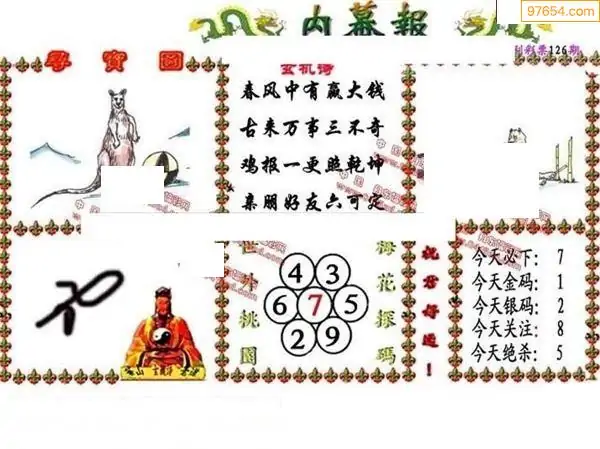 97654.com
内幕報
彩票126期
尋寳圖
玄机诗
春风中有赢大钱
古来万事三不奇
鸡报一更照乾坤
亲朋好友六可定
世外桃園
4 3
6 7 5
2 9
梅花探碼
祝君好运!
今天必下: 7
今天金码: 1
今天银码: 2
今天关注: 8
今天绝杀: 5